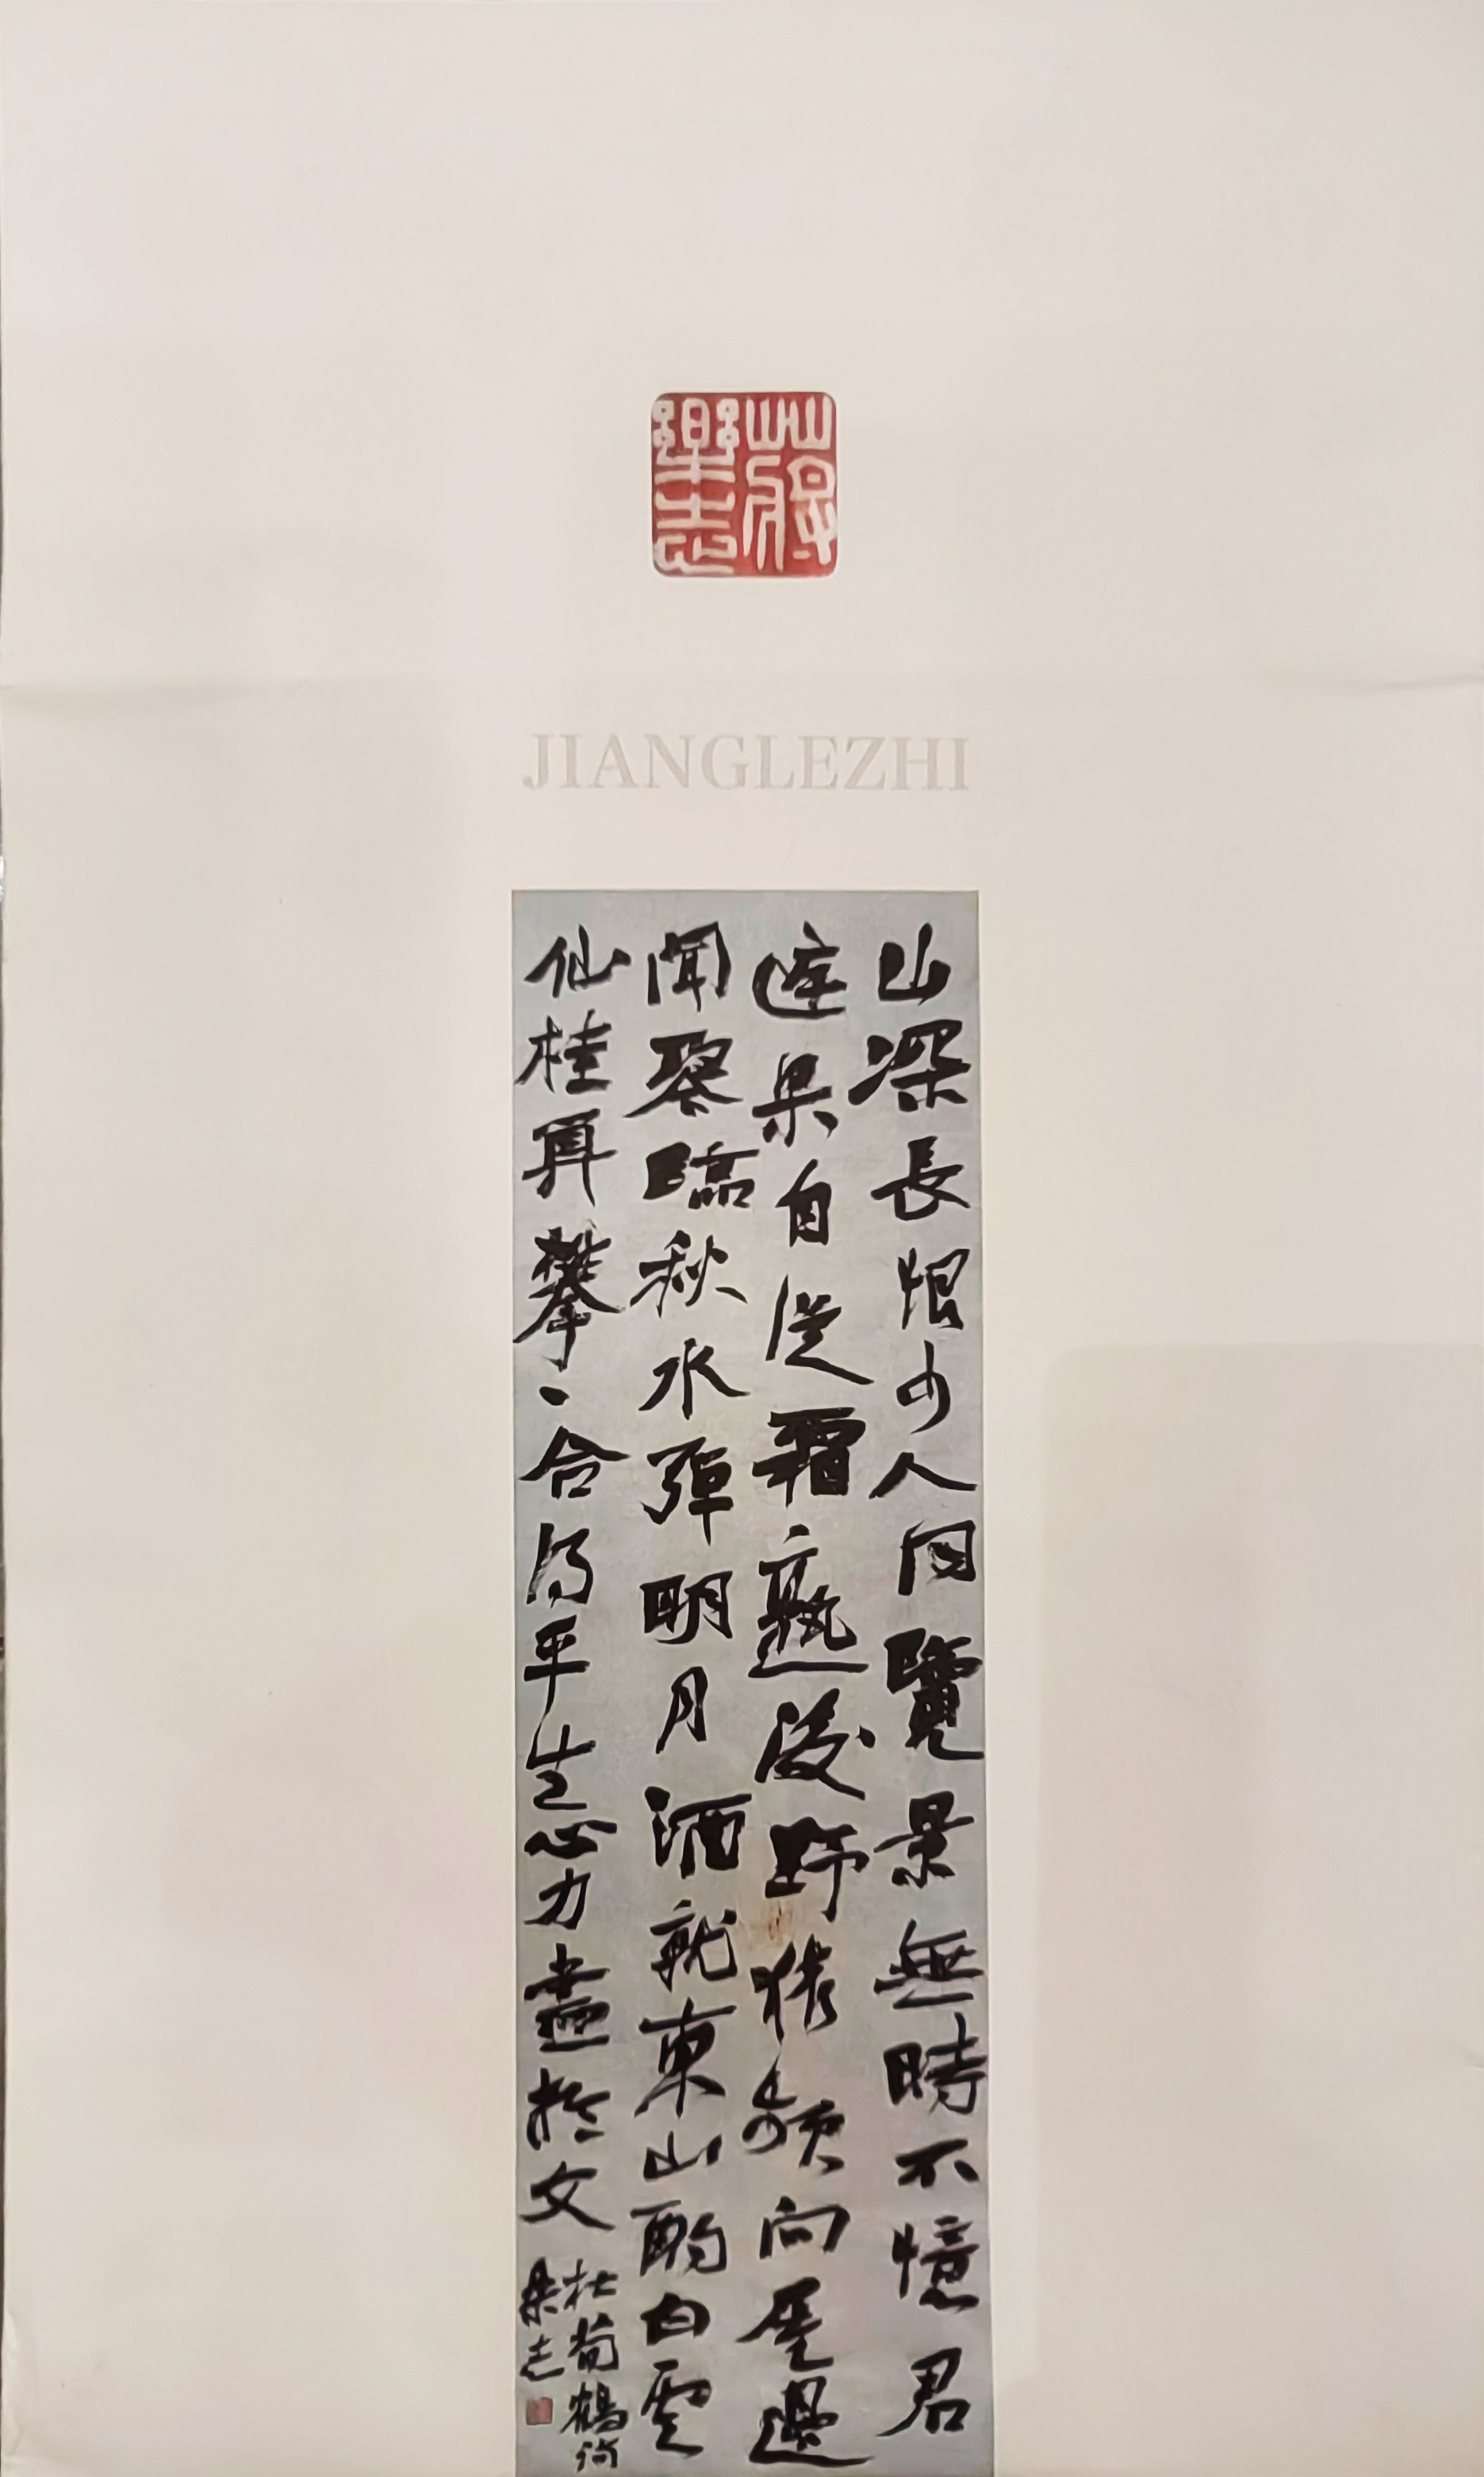 蔣樂志
JIANGLEZHI
山深長恨少人同覽景無時不憶君
庭果自從霜熟後野猿頻向屋邊
聞琴臨秋水彈明月酒就東山酌白雲
仙桂算攀丶合得平生心力盡於文
杜荀鶴詩
樂志